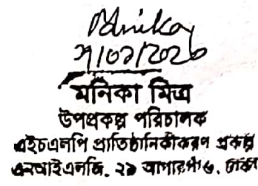 Monika
মনিকা মিত্র
উপপ্রকল্প পরিচালক
এইচএলপি প্রাতিষ্ঠানিকীকরণ প্রকল্প
এনআইএলজি, ২৯ আগারগাঁও, ঢাকা